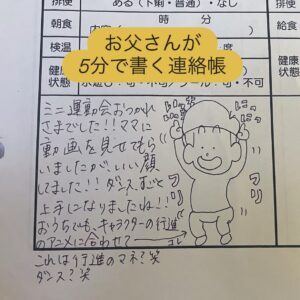 排便 ある（下痢・普通）・なし 排便
朝食 時 分 給食
内容（
お父さんが
5分で書く連絡帳
検温 度
健康状態 ・可・不可 健康状態
ミニ運動会おつかれ
さまでした!!ママに
動画を見せてもら
いましたが、いい顔
してました!!ダンス、ずいぶん
上手になりましたね!!
おうちでも、キャラクターの行進
のアニメに合わせて
フリ フリ
コレ
これは行進のマネ?笑
ダンス?笑